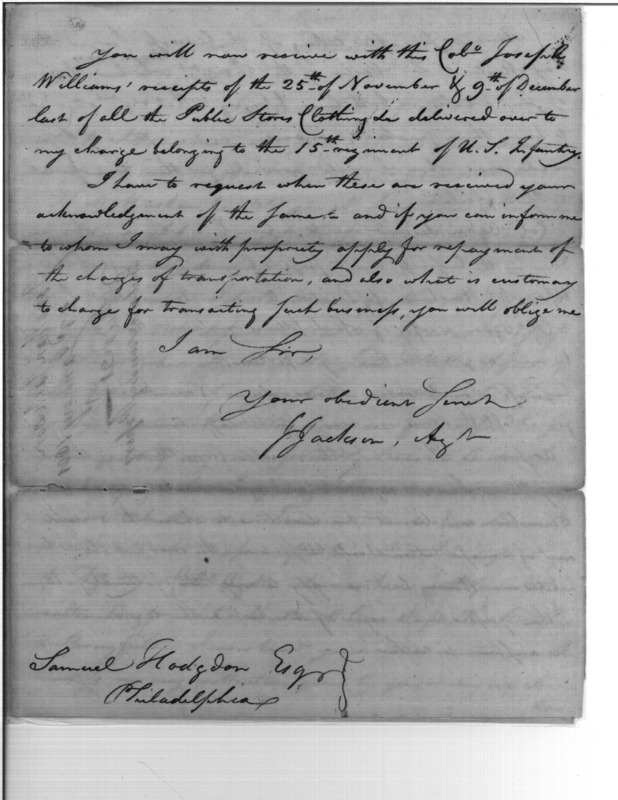 You will now receive with this Colo. Joseph
Williams' receipts of the 25th of November & 9th of December
last of all the Public Stores Clothing &a delivered over to
my charge belonging to the 15th regiment of U. S. Infantry.
I have to request when these are received your
acknowledgment of the same - and if you can inform me
to whom I may with propriety apply for repayment of
the charges of transportation, and also what is customary
to charge for transacting such business, you will oblige me
I am Sir,
Your obedient Servt
J Jackson, Agt
Samuel Hodgdon Esqr
Philadelphia